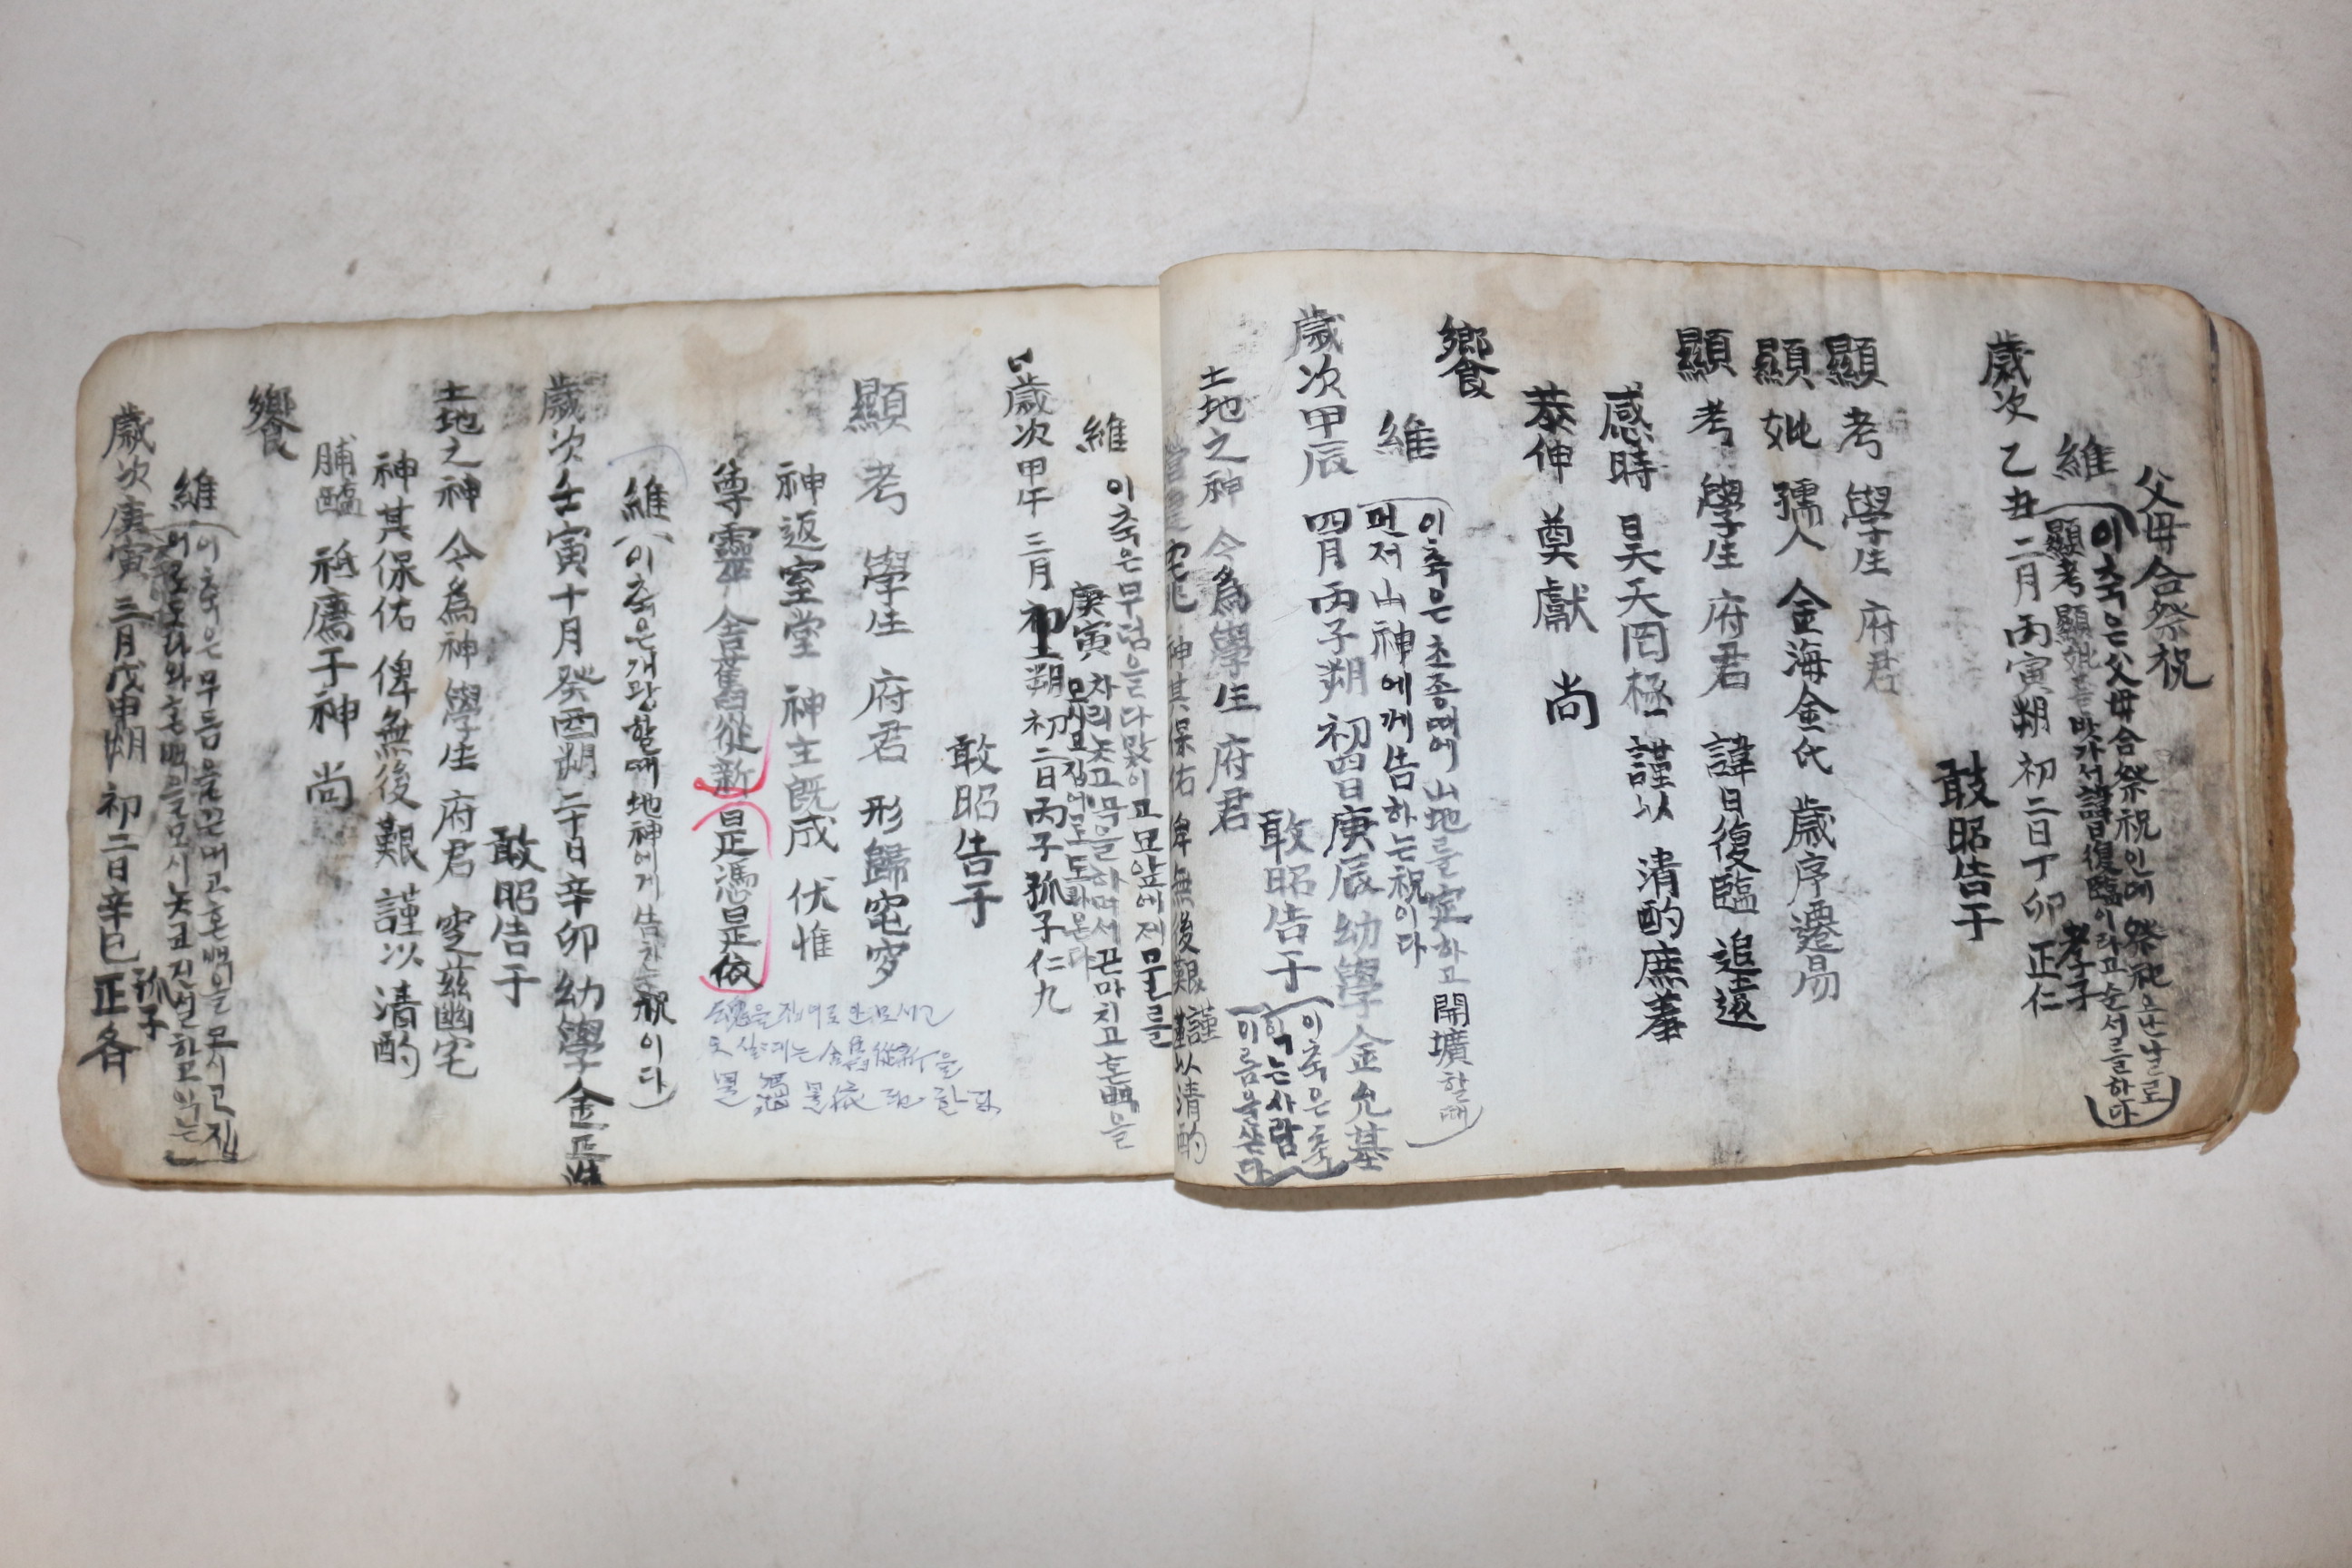 父母合祭祝
維
이축은父母合祭祝인데 祭祀으난날로
顯考顯妣를밧가서諱日復臨이라고순서를한다
歲次 乙丑二月丙寅朔 初二日丁卯 孝子 正仁
敢昭告于
顯考 學生 府君
顯妣 孺人 金海金氏 歲序遷易
顯考 學生 府君 諱日復臨 追遠
感時 昊天罔極 謹以 淸酌庶羞
恭伸 奠獻 尚
饗
維
이축은초종때에 山地를定하고 開壙할때
먼저山神에게告하는祝이다
歲次甲辰 四月丙子朔 初四日庚辰幼學金允基
敢昭告于
이축은축
학는사람
이름을쓴다
土地之神 今爲學生 府君
營建宅兆 神其保佑 俾無後艱 謹以清酌
維
이축은무덤을다맟이고묘앞에제물를
차리놋고독을하며서끈마치고혼백을
모시고집에로도라온다
庚寅
歲次甲午 三月 朔初二日丙子孤子仁九
敢昭告于
顯考 學生 府君 形歸窀穸
神返室堂 神主旣成 伏惟
尊靈 舍舊從新 是憑是依
魂을집이로안모시고
舍舊從新을
是憑是依
維
이축은개광할때地神에게告하는祝이다
歲次壬寅十月癸酉朔 二十日辛卯 幼學金正
敢昭告于
土地之神 今爲神 學生 府君 窆茲幽宅
神其保佑 俾無後艱 謹以清酌
脯醢 祗薦于神 尚
饗
維
이축은무듬을끈내고혼백을모시고집
이로도라와혼백을모시놋코진설하고익는
歲次庚寅 三月戊申朔 初二日辛巳孤子正各